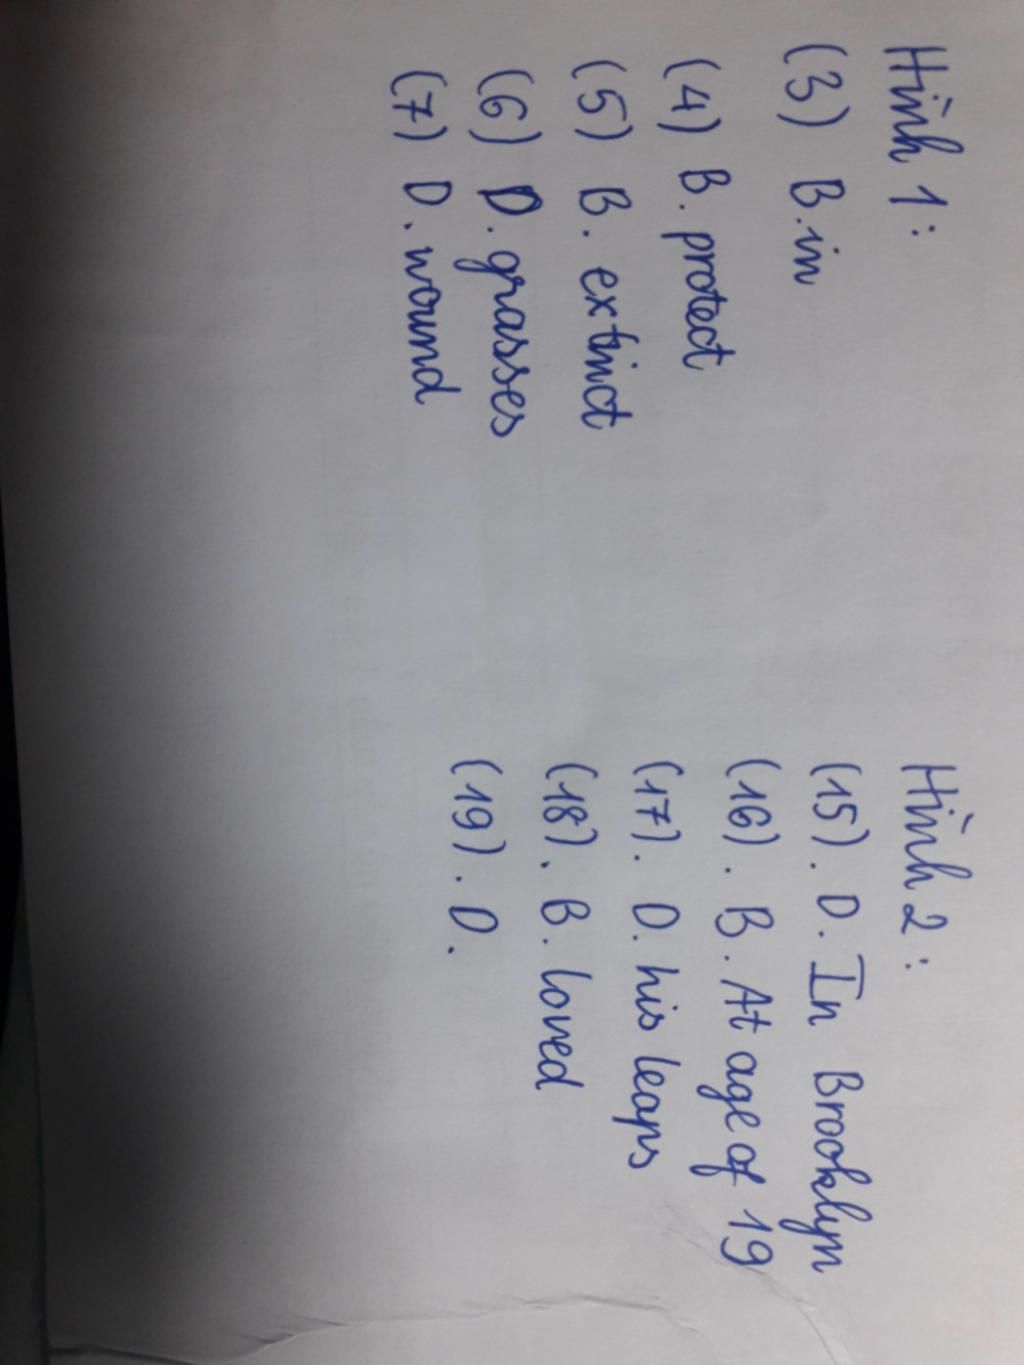 Hình 1:
(3) B. in
(4) B. protect
(5) B. extinct
(6) D. grasses
(7) D. wound
Hình 2:
(15). D. In Brooklyn
(16). B. At age of 19
(17). D. his leaps
(18). B. loved
(19). D.